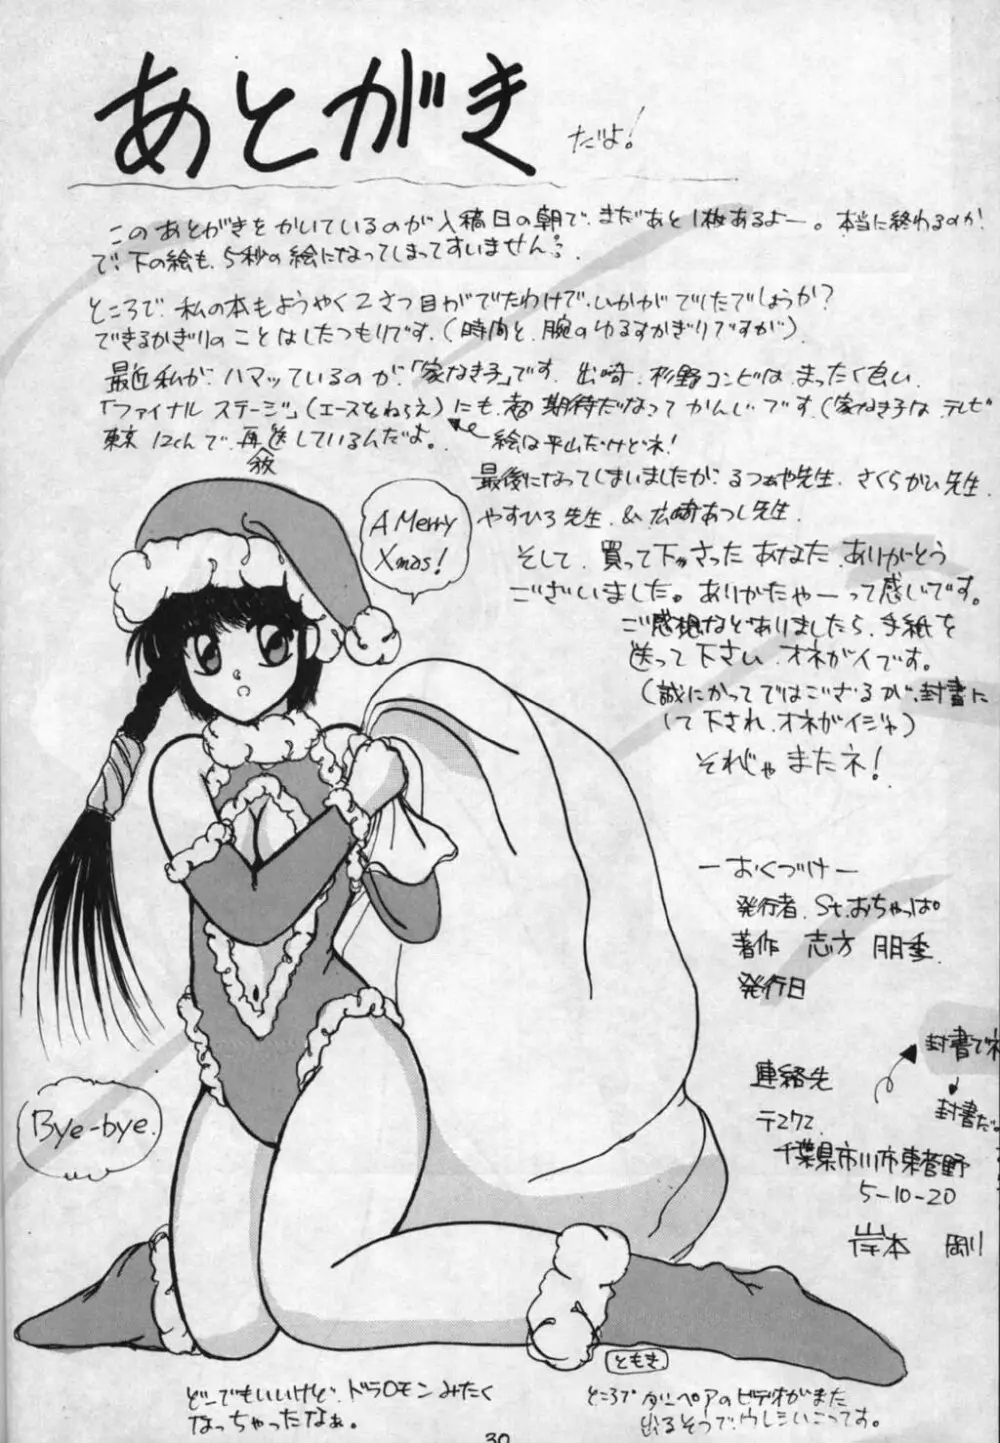 あとがき
だよ!
このあとがきをかいているのが入稿日の朝で、まだあと1枚あるよー。本当に終わるのか
で、下の絵も、5秒の絵になってしまってすいません。
ところで、私の本もようやく2さつ目がでたわけで、いかがでしたでしょうか?
できるかぎりのことはしたつもりです。(時間と、腕のゆるすかぎりですが)
最近私が、ハマッているのが、「家なき子」です。出崎、杉野コンビは、まったく良い。
「ファイナルステージ」(エースをねらえ)にも、超期待だなってかんじです。(家なき子は、テレビ
東京12chで、再送しているんだよ。
放
絵は平山だけどネ!
最後になってしまいましたが、るつぁや先生、さくらがひ先生、
やすひろ先生、&広崎あつし先生、
そして、買って下さったあなた、ありがとう
ございました。ありがたやーって感じです。
ご感想などありましたら、手紙を
送って下さい、オネガイです。
(誠にかってではござるが、封書に
して下され、オネガイジャ)
それじゃまたネ!
A Merry
Xmas!
ーおくづけー
発行者 St.おちゃっぱ。
著作 志方 朋季
発行日
封書でネ
封書だよ
連絡先
〒272
千葉県市川市東菅野
5-10-20
岸本 剛
Bye-bye.
ともき
どーでもいいけど、ドラ○モンみたく
なっちゃったなぁ。
ところで、ダーペアのビデオがまた
出るそうで、ウレシいこってす。
30